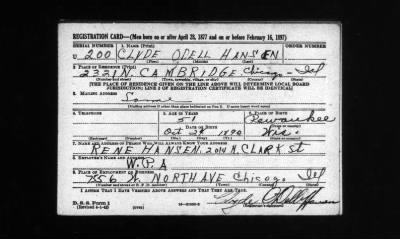 REGISTRATION CARD—(Men born on or after April 28, 1877 and on or before February 16, 1897)
SERIAL NUMBER 1. NAME (Print)
U 200 CLYDE ODELL HANSEN
(First) (Middle) (Last)
2. PLACE OF RESIDENCE (Print)
2321 N. CAMBRIDGE Chicago - Ill
(Number and street) (Town, township, village, or city) (County) (State)
[THE PLACE OF RESIDENCE GIVEN ON THE LINE ABOVE WILL DETERMINE LOCAL BOARD
JURISDICTION; LINE 2 OF REGISTRATION CERTIFICATE WILL BE IDENTICAL]
3. MAILING ADDRESS
Same
[Mailing address if other than place indicated on line 2. If same insert word same]
4. TELEPHONE 5. AGE IN YEARS 6. PLACE OF BIRTH
51 Kewaunkee
DATE OF BIRTH
Oct 1890 Wis.
7. NAME AND ADDRESS OF PERSON WHO WILL ALWAYS KNOW YOUR ADDRESS
RENE HANSEN. N. CLARK St
8. EMPLOYER'S NAME AND ADDRESS
W.P.A
9. PLACE OF EMPLOYMENT OR BUSINESS
NORTH AVE Chicago Ill
(Number and street or R. F. D. number) (Town) (County) (State)
I AFFIRM THAT I HAVE VERIFIED ABOVE ANSWERS AND THAT THEY ARE TRUE.
D. S. S. Form 1
(Revised 4-1-42) Clyde Odell Hansen